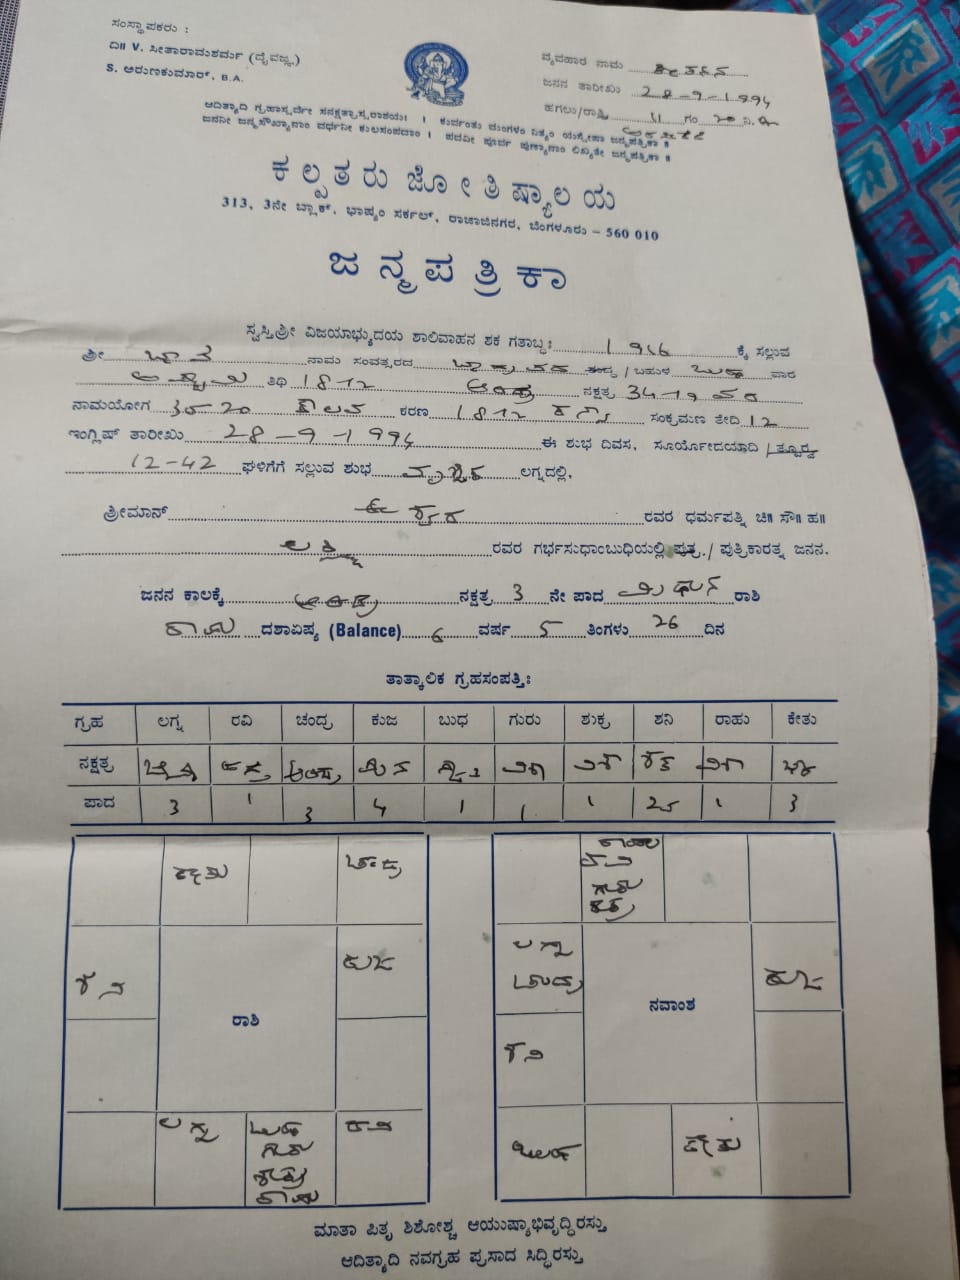 ಸಂಸ್ಥಾಪಕರು :
ದಿ॥ V. ಸೀತಾರಾಮಶರ್ಮ (ದೈವಜ್ಞ)
S. ಅರುಣಕುಮಾರ್, B.A.
ವ್ಯವಹಾರ ನಾಮ
ಜನನ ತಾರೀಖು 28-9-1994
ಹಗಲು/ರಾತ್ರಿ 11 ಗಂ 20 ನಿ.
ಆದಿತ್ಯಾದಿ ಗ್ರಹಾಸ್ಸರ್ವೇ ಸನಕ್ಷತ್ರಾಸ್ಸರಾಶಯಃ । ಕುರ್ವಂತು ಮಂಗಳಂ ನಿತ್ಯಂ ಯಸ್ಯೇಷಾ ಜನ್ಮಪತ್ರಿಕಾ ॥
ಜನನೀ ಜನ್ಮಸೌಖ್ಯಾನಾಂ ವರ್ಧನೀ ಕುಲಸಂಪದಾಂ । ಪದವೀ ಪೂರ್ವ ಪುಣ್ಯಾನಾಂ ಲಿಖ್ಯತೇ ಜನ್ಮಪತ್ರಿಕಾ ॥
ಕಲ್ಪತರು ಜೋತಿಷ್ಯಾಲಯ
313, 3ನೇ ಬ್ಲಾಕ್, ಭಾಷ್ಯಂ ಸರ್ಕಲ್, ರಾಜಾಜಿನಗರ, ಬೆಂಗಳೂರು – 560 010
ಜನ್ಮಪತ್ರಿಕಾ
ಸ್ವಸ್ತಿಶ್ರೀ ವಿಜಯಾಭ್ಯುದಯ ಶಾಲಿವಾಹನ ಶಕ ಗತಾಬ್ದಃ 1916 ಕ್ಕೆ ಸಲ್ಲುವ
ಶ್ರೀ ಭಾವ ನಾಮ ಸಂವತ್ಸರದ ಭಾದ್ರಪದ ಶುದ್ಧ / ಬಹುಳ ಬುಧ ವಾರ
ಅಷ್ಟಮಿ ತಿಥಿ 18-12 ಆರಿದ್ರ ನಕ್ಷತ್ರ 34-19 ವರ
ನಾಮಯೋಗ 35-20 ಕೌಲವ ಕರಣ 18-12 ಕನ್ಯಾ ಸಂಕ್ರಮಣ ತೇದಿ 12
ಇಂಗ್ಲಿಷ್ ತಾರೀಖು 28-9-1994 ಈ ಶುಭ ದಿವಸ, ಸೂರ್ಯೋದಯಾದಿ / ತ್ಪೂರ್ವ
12-42 ಘಳಿಗೆಗೆ ಸಲ್ಲುವ ಶುಭ ವೃಶ್ಚಿಕ ಲಗ್ನದಲ್ಲಿ,
ಶ್ರೀಮಾನ್ ಈಶ್ವರ ರವರ ಧರ್ಮಪತ್ನಿ ಚಿ॥ ಸೌ॥ ಹ॥
ಲಕ್ಷ್ಮೀ ರವರ ಗರ್ಭಸುಧಾಂಬುಧಿಯಲ್ಲಿ ಪುತ್ರ / ಪುತ್ರಿಕಾರತ್ನ ಜನನ.
ಜನನ ಕಾಲಕ್ಕೆ ಆರಿದ್ರ ನಕ್ಷತ್ರ 3 ನೇ ಪಾದ ಮಿಥುನ ರಾಶಿ
ರಾಹು ದಶಾಶಿಷ್ಯ (Balance) 6 ವರ್ಷ 5 ತಿಂಗಳು 26 ದಿನ
ತಾತ್ಕಾಲಿಕ ಗ್ರಹಸಂಪತ್ತಿಃ
ಗ್ರಹ ಲಗ್ನ ರವಿ ಚಂದ್ರ ಕುಜ ಬುಧ ಗುರು ಶುಕ್ರ ಶನಿ ರಾಹು ಕೇತು
ನಕ್ಷತ್ರ ಹಸ್ತ ಆರಿದ್ರ ವಿಶಾ ವಿಶಾ ಶತ ವಿಶಾ
ಪಾದ 3 1 3 4 1 1 1 2 1 3
ಕೇತು ಚಂದ್ರ
ಶನಿ ಕುಜ
ರಾಶಿ
ಲಗ್ನ ಬುಧ ಗುರು ಶುಕ್ರ ರಾಹು ರವಿ
ರಾಹು ರವಿ ಗುರು ಶುಕ್ರ
ಲಗ್ನ ಚಂದ್ರ ಕುಜ
ನವಾಂಶ
ಶನಿ
ಬುಧ ಕೇತು
ಮಾತಾ ಪಿತೃ ಶಿಶೋಶ್ಚ ಆಯುಷ್ಯಾಭಿವೃದ್ಧಿರಸ್ತು
ಆದಿತ್ಯಾದಿ ನವಗ್ರಹ ಪ್ರಸಾದ ಸಿದ್ಧಿರಸ್ತು